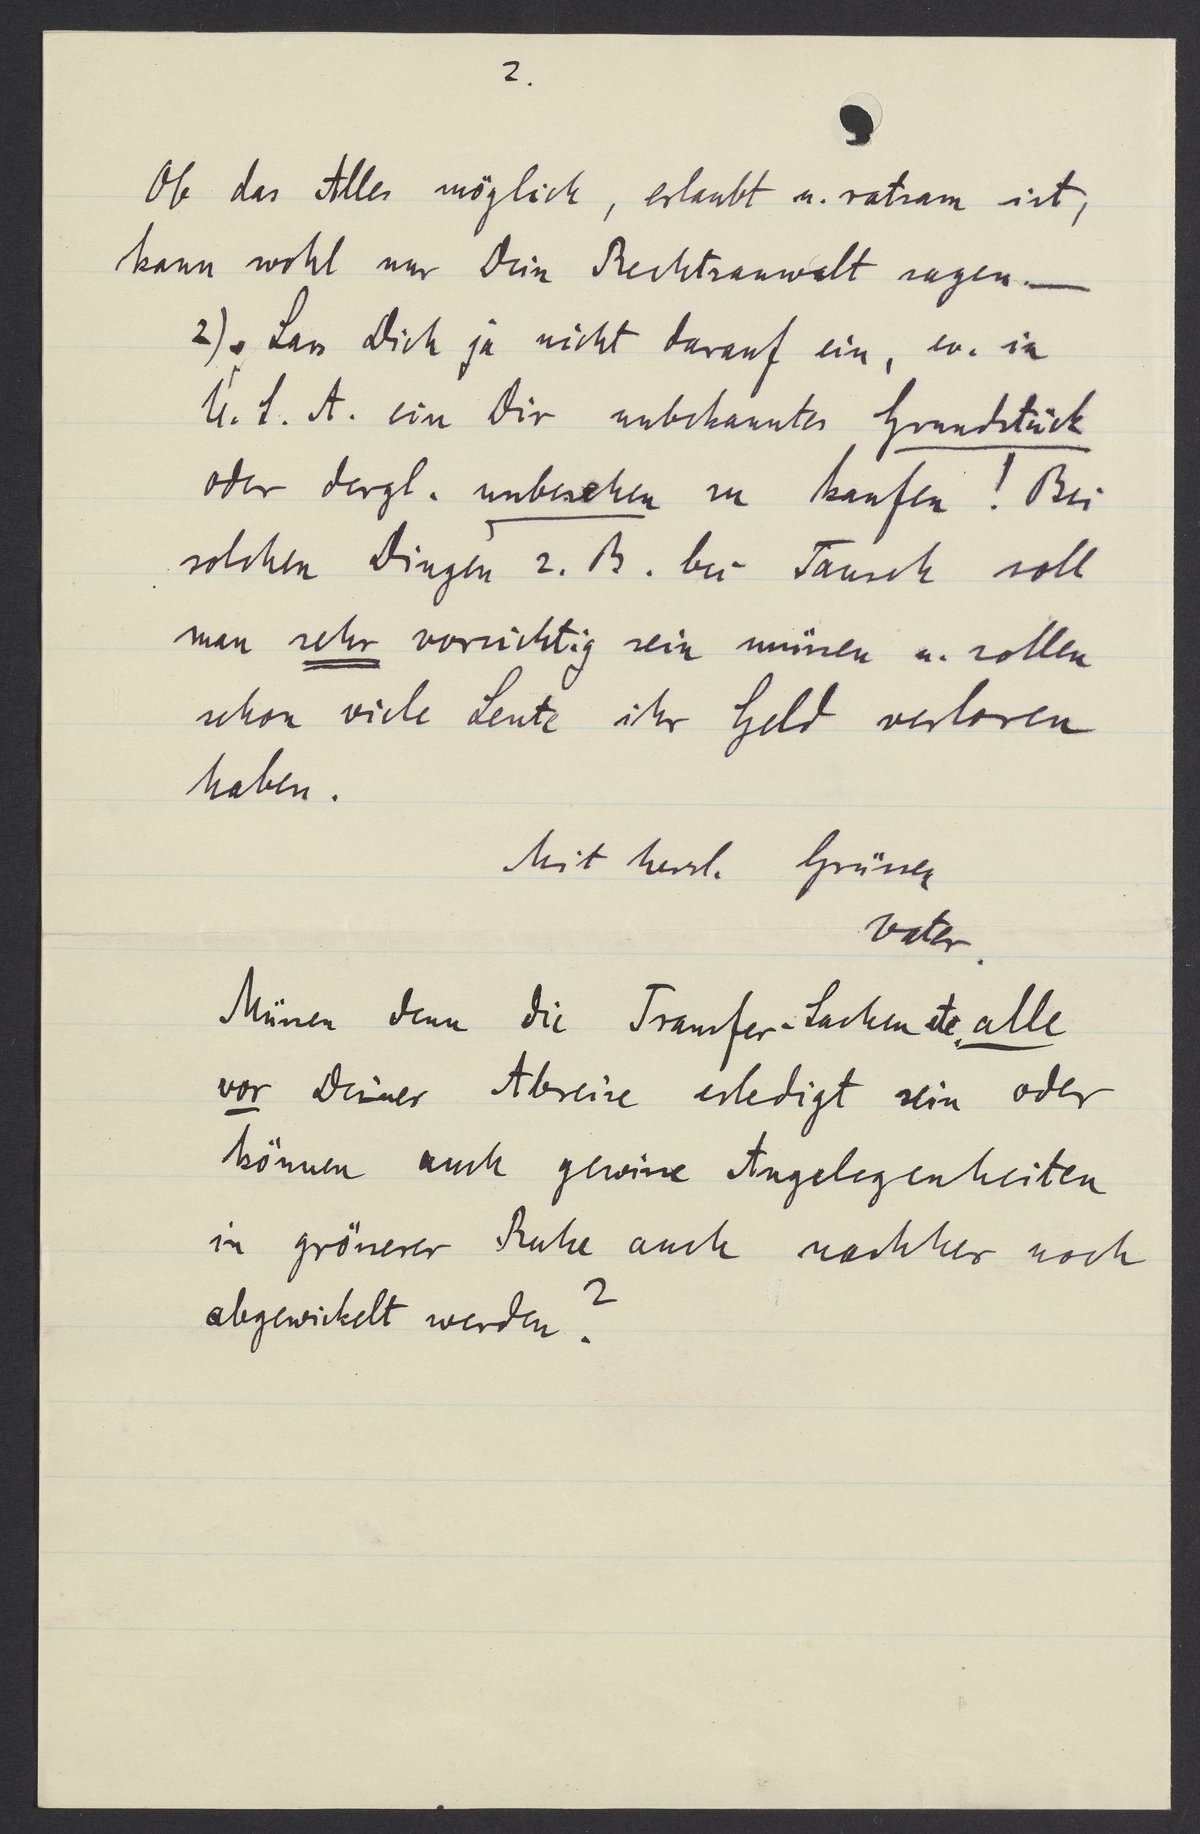 2.
Ob das Alles möglich, erlaubt u. ratsam ist,
kann wohl nur Dein Rechtsanwalt sagen.—
2). Lass Dich ja nicht darauf ein, ev. in
U.S.A. ein Dir unbekanntes Grundstück
oder dergl. unbesehen zu kaufen! Bei
solchen Dingen z.B. bei Tausch soll
man sehr vorsichtig sein müssen u. sollen
schon viele Leute ihr Geld verloren
haben.
Mit herzl. Grüssen
Vater.
Müssen denn die Transfer-Sachen etc. alle
vor Deiner Abreise erledigt sein oder
können auch gewisse Angelegenheiten
in grösserer Ruhe auch nachher noch
abgewickelt werden?